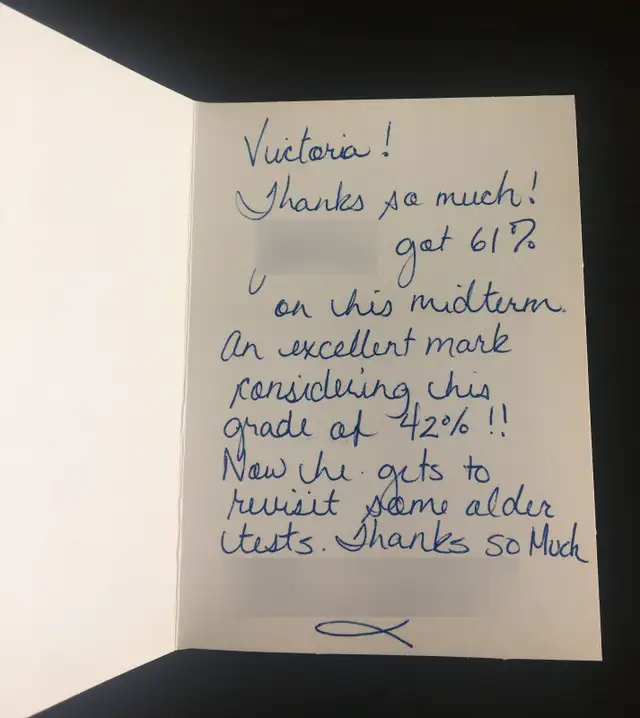 Victoria!
Thanks so much!
got 61%
on his midterm.
An excellent mark
considering his
grade of 42% !!
Now he gets to
revisit some older
tests. Thanks so Much